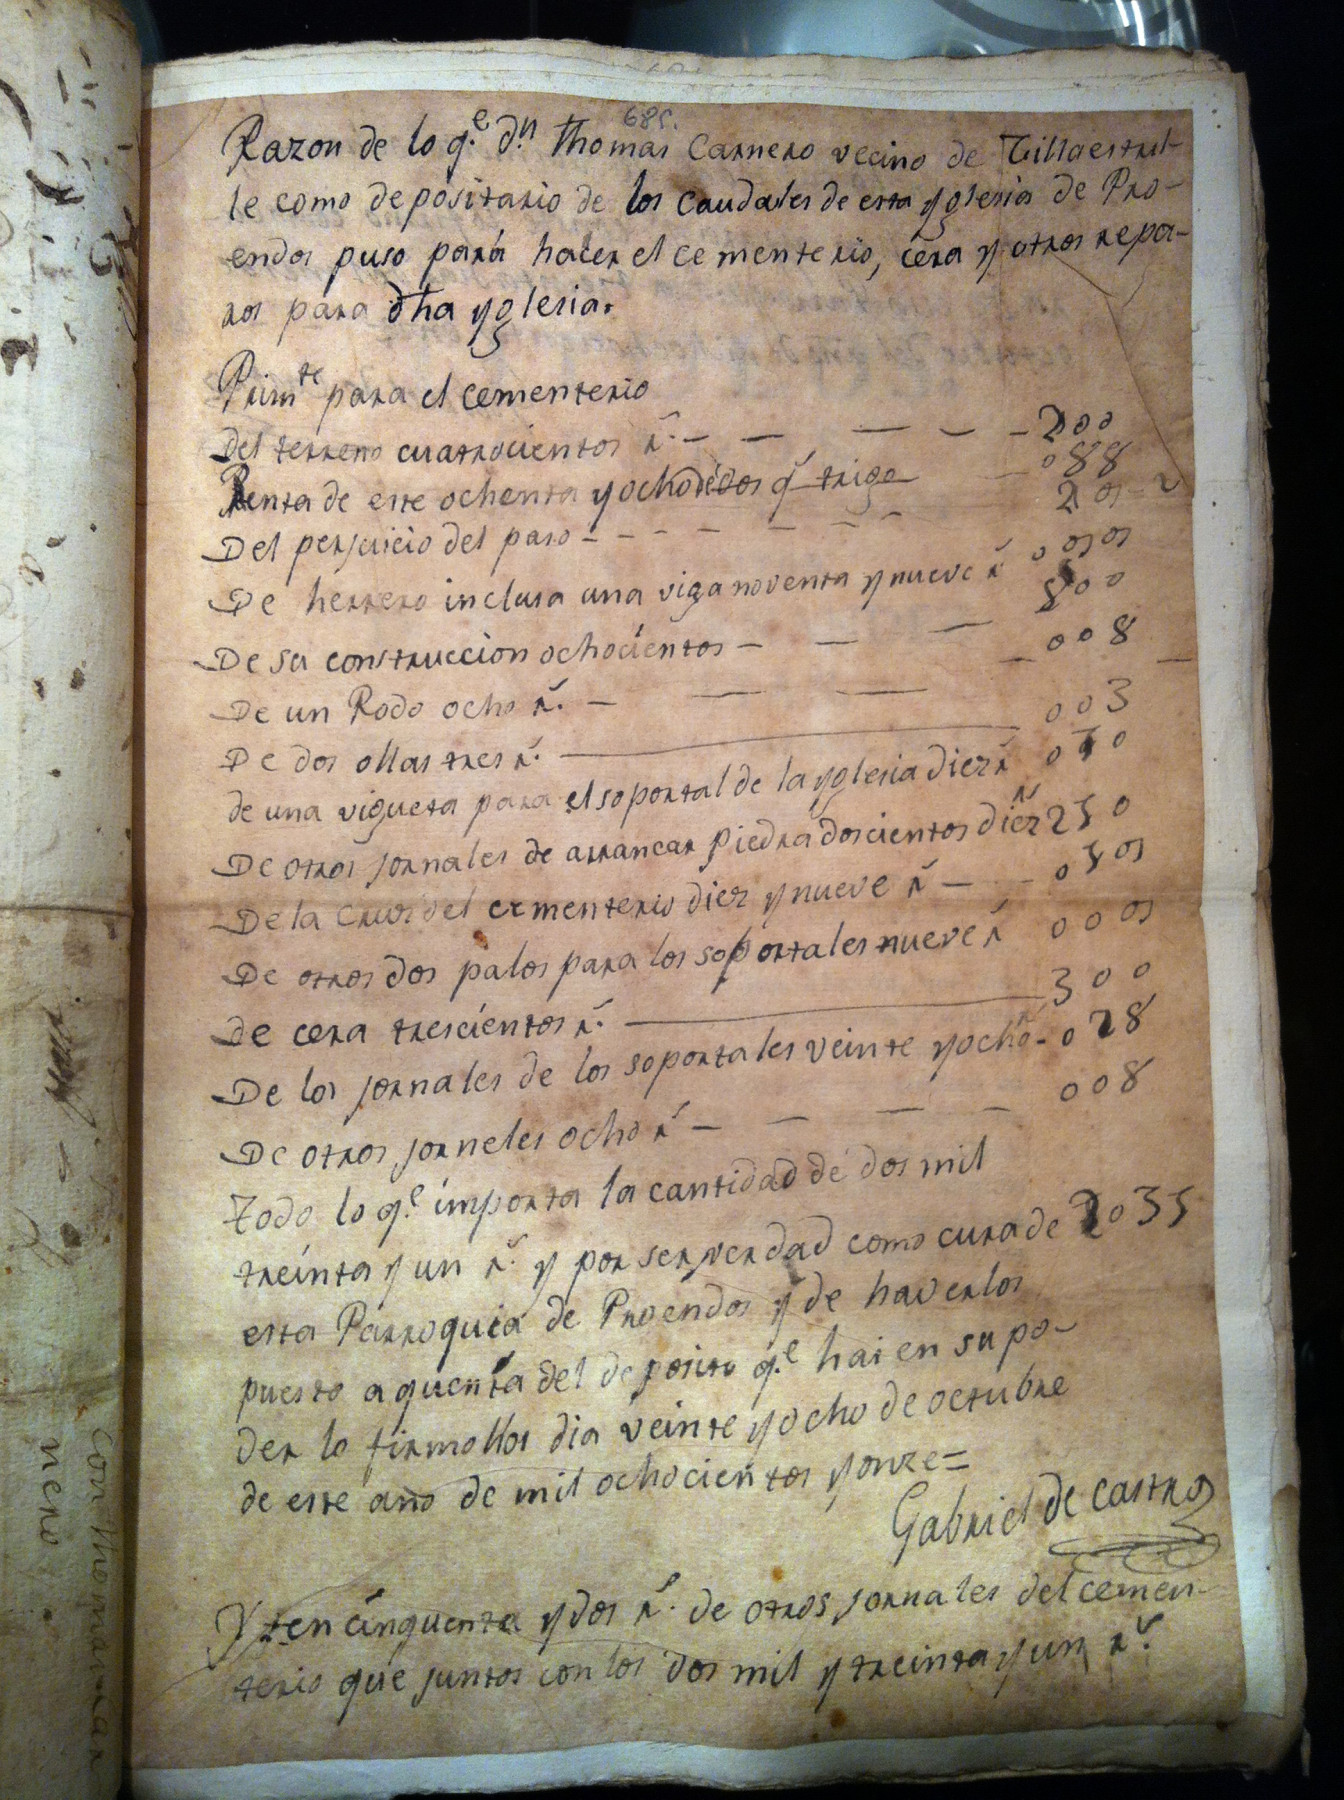 685.
Razon de lo q.e d.n Thomas Carnero vecino de Villaestrul-
le como depositario de los caudales de esta yglesia de Pro-
endos puso pará hacer el cementerio, cera y otros repa-
ros para dha yglesia.
Prim.te para el cementerio
Del terreno cuatrocientos r.s - - - - - 200
Renta de este ochenta y ocho q.s trigo - 088
Del perjuicio del paso - - - - - - - 29 - 2
De herrero inclusa una viga noventa y nueve r.s 099
De su construccion ochocientos - - - 800
De un Rodo ocho r.s - - - - 008 -
De dos ollas tres r.s - 003
de una vigueta para el soportal de la yglesia diez r.s 010
De otros jornales de arrancar piedra doscientos diez r.s 210
De la Crus del cementerio diez y nueve r.s - - 019
De otros dos palos para los soportales nueve r.s 009
de cera trescientos r.s - 300
De los jornales de los soportales veinte y ocho r.s - 028
De otros jorneles ocho r.s - - - - 008
Todo lo q.e importa la cantidad de dos mil
treinta y un r.s y por ser verdad como cura de 2031
esta Párroquia de Proendos y de haverlos
puesto a quenta del deposito q.e hai en su po-
der lo firmo Hoi dia veinte y ocho de octubre
de este año de mil ochocientos y onze =
Gabriel de Castro
Yten cinquenta y dos r.s de otros jornales del cemen-
terio que juntos con los dos mil y treinta y un r.s
con thomas car
nero